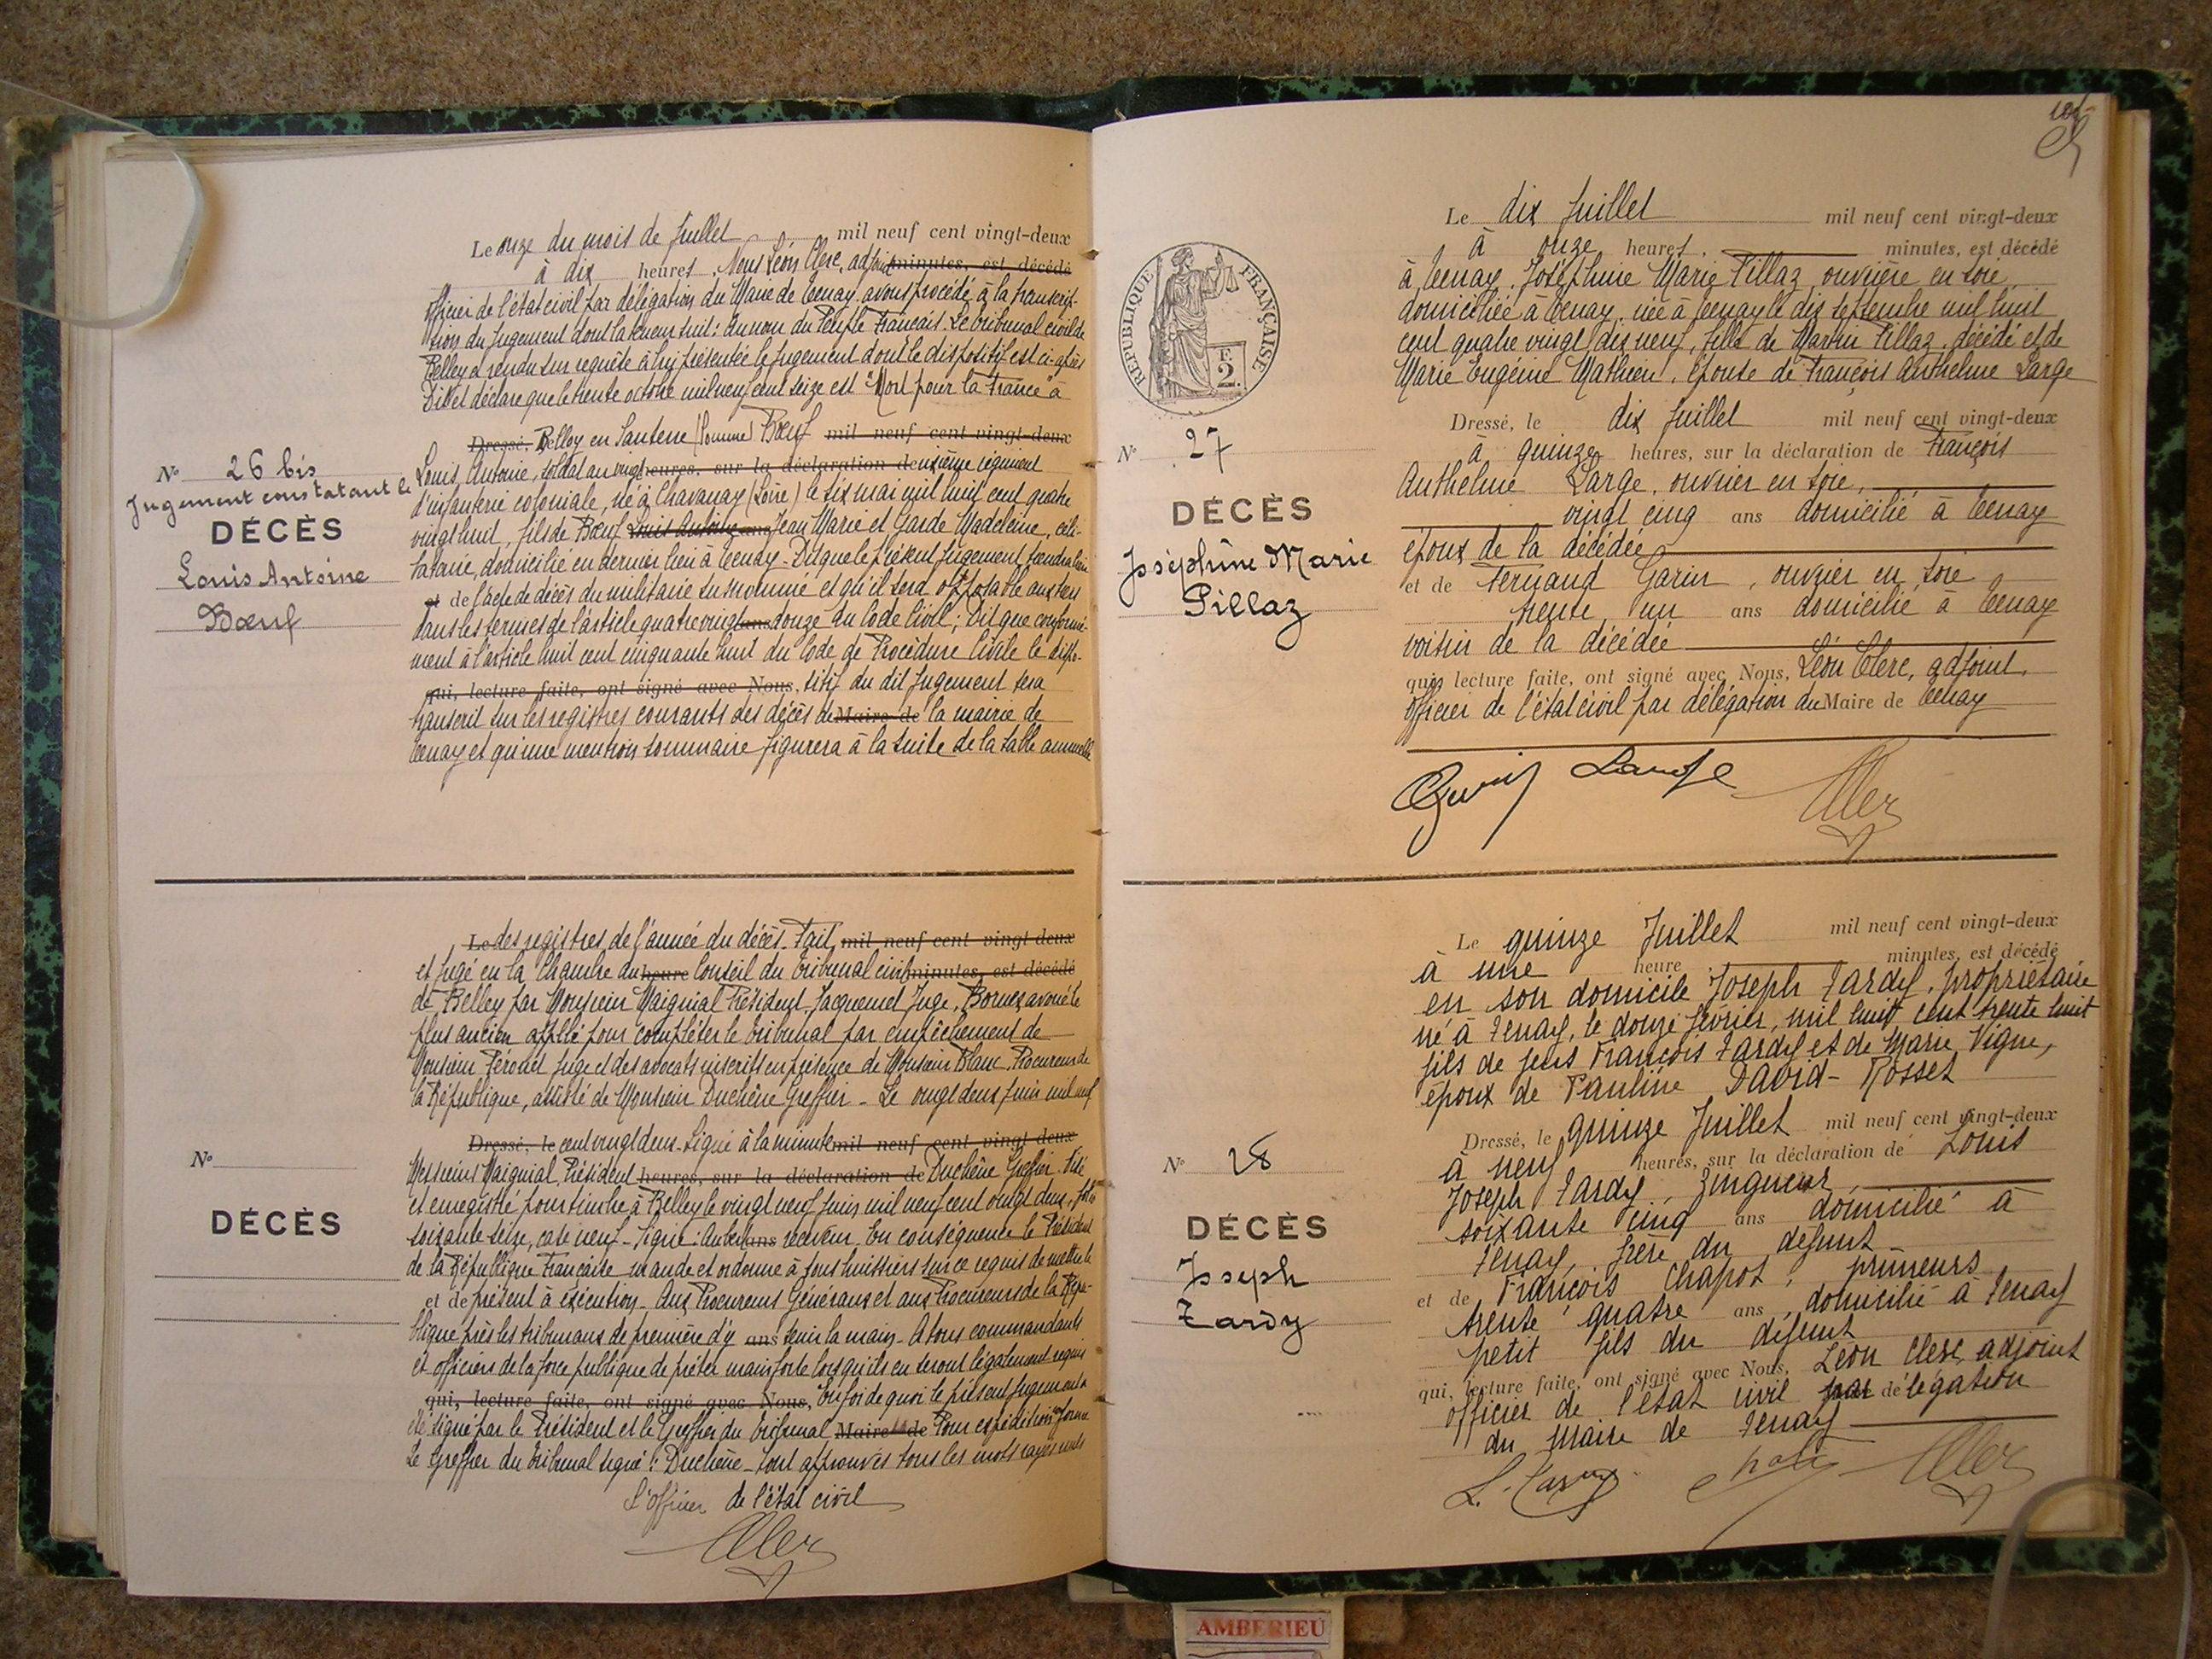 Le onze du mois de Juillet mil neuf cent vingt-deux
à dix heures, Nous Léon Clerc, adjoint minutes, est décédé
officier de l'état civil par délégation du Maire de Tenay avons procédé à la transcrip-
tion du Jugement dont la teneur suit: Au nom du Peuple Français. Le Tribunal civil de
Belley a rendu sur requête à lui présentée le Jugement dont le dispositif est ci-après
Dit et déclare que le trente octobre mil neuf cent seize est "Mort pour la France" à
Dressé, Belloy en Santerre (Somme) Bœuf mil neuf cent vingt-deux
Louis, Antoine, soldat au vingt heures, sur la déclaration de uxième régiment
d'infanterie coloniale, né à Chavanay (Loire) le six mai mil huit cent quatre
vingt huit, fils de Bœuf Louis Antoine ans Jean Marie et Garde Madeleine, céli-
bataire, domicilié en dernier lieu à Tenay - Dit que le présent jugement tiendra lieu
et de l'acte de décès du militaire susnommé et qu'il sera opposable aux tiers
dans les termes de l'article quatre vingt ans douze du Code Civil; Dit que conformé-
ment à l'article huit cent cinquante huit du Code de Procédure Civile le dispo-
qui, lecture faite, ont signé avec Nous, sitif du dit Jugement sera
transcrit sur les registres courants des décès de Maire de la mairie de
Tenay et qu'une mention sommaire figurera à la suite de la table annuelle
N° 26 bis
Jugement constatant le
DÉCÈS
Louis Antoine
Bœuf
Le des registres de l'année du décès. Fait mil neuf cent vingt-deux
et jugé en la Chambre du heure Conseil du Tribunal civil minutes, est décédé
de Belley par Monsieur Maignial Président, Jacquemet Juge, Bornez avoué le
plus ancien appelé pour compléter le Tribunal par empêchement de
Monsieur Férouel Juge et des avocats inscrits en présence de Monsieur Blanc, Procureur de
la République, assisté de Monsieur Duchêne Greffier - Le vingt deux Juin mil neuf
Dressé, le cent vingt deux - Signé à la minute mil neuf cent vingt-deux
Messieurs Maignial, Président heures, sur la déclaration de Duchêne Greffier. Visé
et enregistré pour timbre à Belley le vingt neuf juin mil neuf cent vingt deux, folio
soixante seize, case neuf - Signé: ans receveur. En conséquence le Président
de la République Française mande et ordonne à tous huissiers sur ce requis de mettre le
et de présent à exécution - Aux Procureurs Généraux et aux Procureurs de la Répu-
blique près les tribunaux de première d'y ans tenir la main - A tous commandants
et officiers de la force publique de prêter main forte lorsqu'ils en seront légalement requis
qui, lecture faite, ont signé avec Nous, En foi de quoi le présent Jugement a
été signé par le Président et le Greffier du Tribunal Maire de Pour expédition forme
Le Greffier du Tribunal signé: Duchêne - tout approuvés tous les mots rayés nuls
L'officier de l'état civil
Clerc
N°
DÉCÈS
Le dix Juillet mil neuf cent vingt-deux
à onze heures, minutes, est décédé
à Tenay, Joséphine Marie Pillaz, ouvrière en soie,
domiciliée à Tenay, née à Tenay le dix septembre mil huit
cent quatre vingt dix neuf, fille de Martin Pillaz, décédé et de
Marie Eugénie Mathieu, épouse de François Anthelme Large
Dressé, le dix Juillet mil neuf cent vingt-deux
à quinze heures, sur la déclaration de François
Anthelme Large, ouvrier en soie,
vingt cinq ans domicilié à Tenay
époux de la décédée
et de Fernand Garin, ouvrier en soie
trente un ans domicilié à Tenay
voisin de la décédée
qui, lecture faite, ont signé avec Nous, Léon Clerc, adjoint,
officier de l'état civil par délégation du Maire de Tenay
Garin Large Clerc
RÉPUBLIQUE FRANÇAISE
F.
2.
N° 27
DÉCÈS
Joséphine Marie
Pillaz
Le quinze Juillet mil neuf cent vingt-deux
à une heure minutes, est décédé
en son domicile Joseph Tardy, propriétaire
né à Tenay, le douze février, mil huit cent trente huit
fils de feus François Tardy et de Marie Vigne,
époux de Pauline David-Rosset
Dressé, le quinze Juillet mil neuf cent vingt-deux
à neuf heures, sur la déclaration de Louis
Joseph Tardy, Zingueur,
soixante cinq ans domicilié à
Tenay, frère du défunt
et de François Chapot, primeurs
trente quatre ans, domicilié à Tenay
petit fils du défunt
qui, lecture faite, ont signé avec Nous, Léon Clerc, adjoint
officier de l'état civil par délégation
du Maire de Tenay
L. Tardy Clerc
N° 28
DÉCÈS
Joseph
Tardy
AMBERIEU